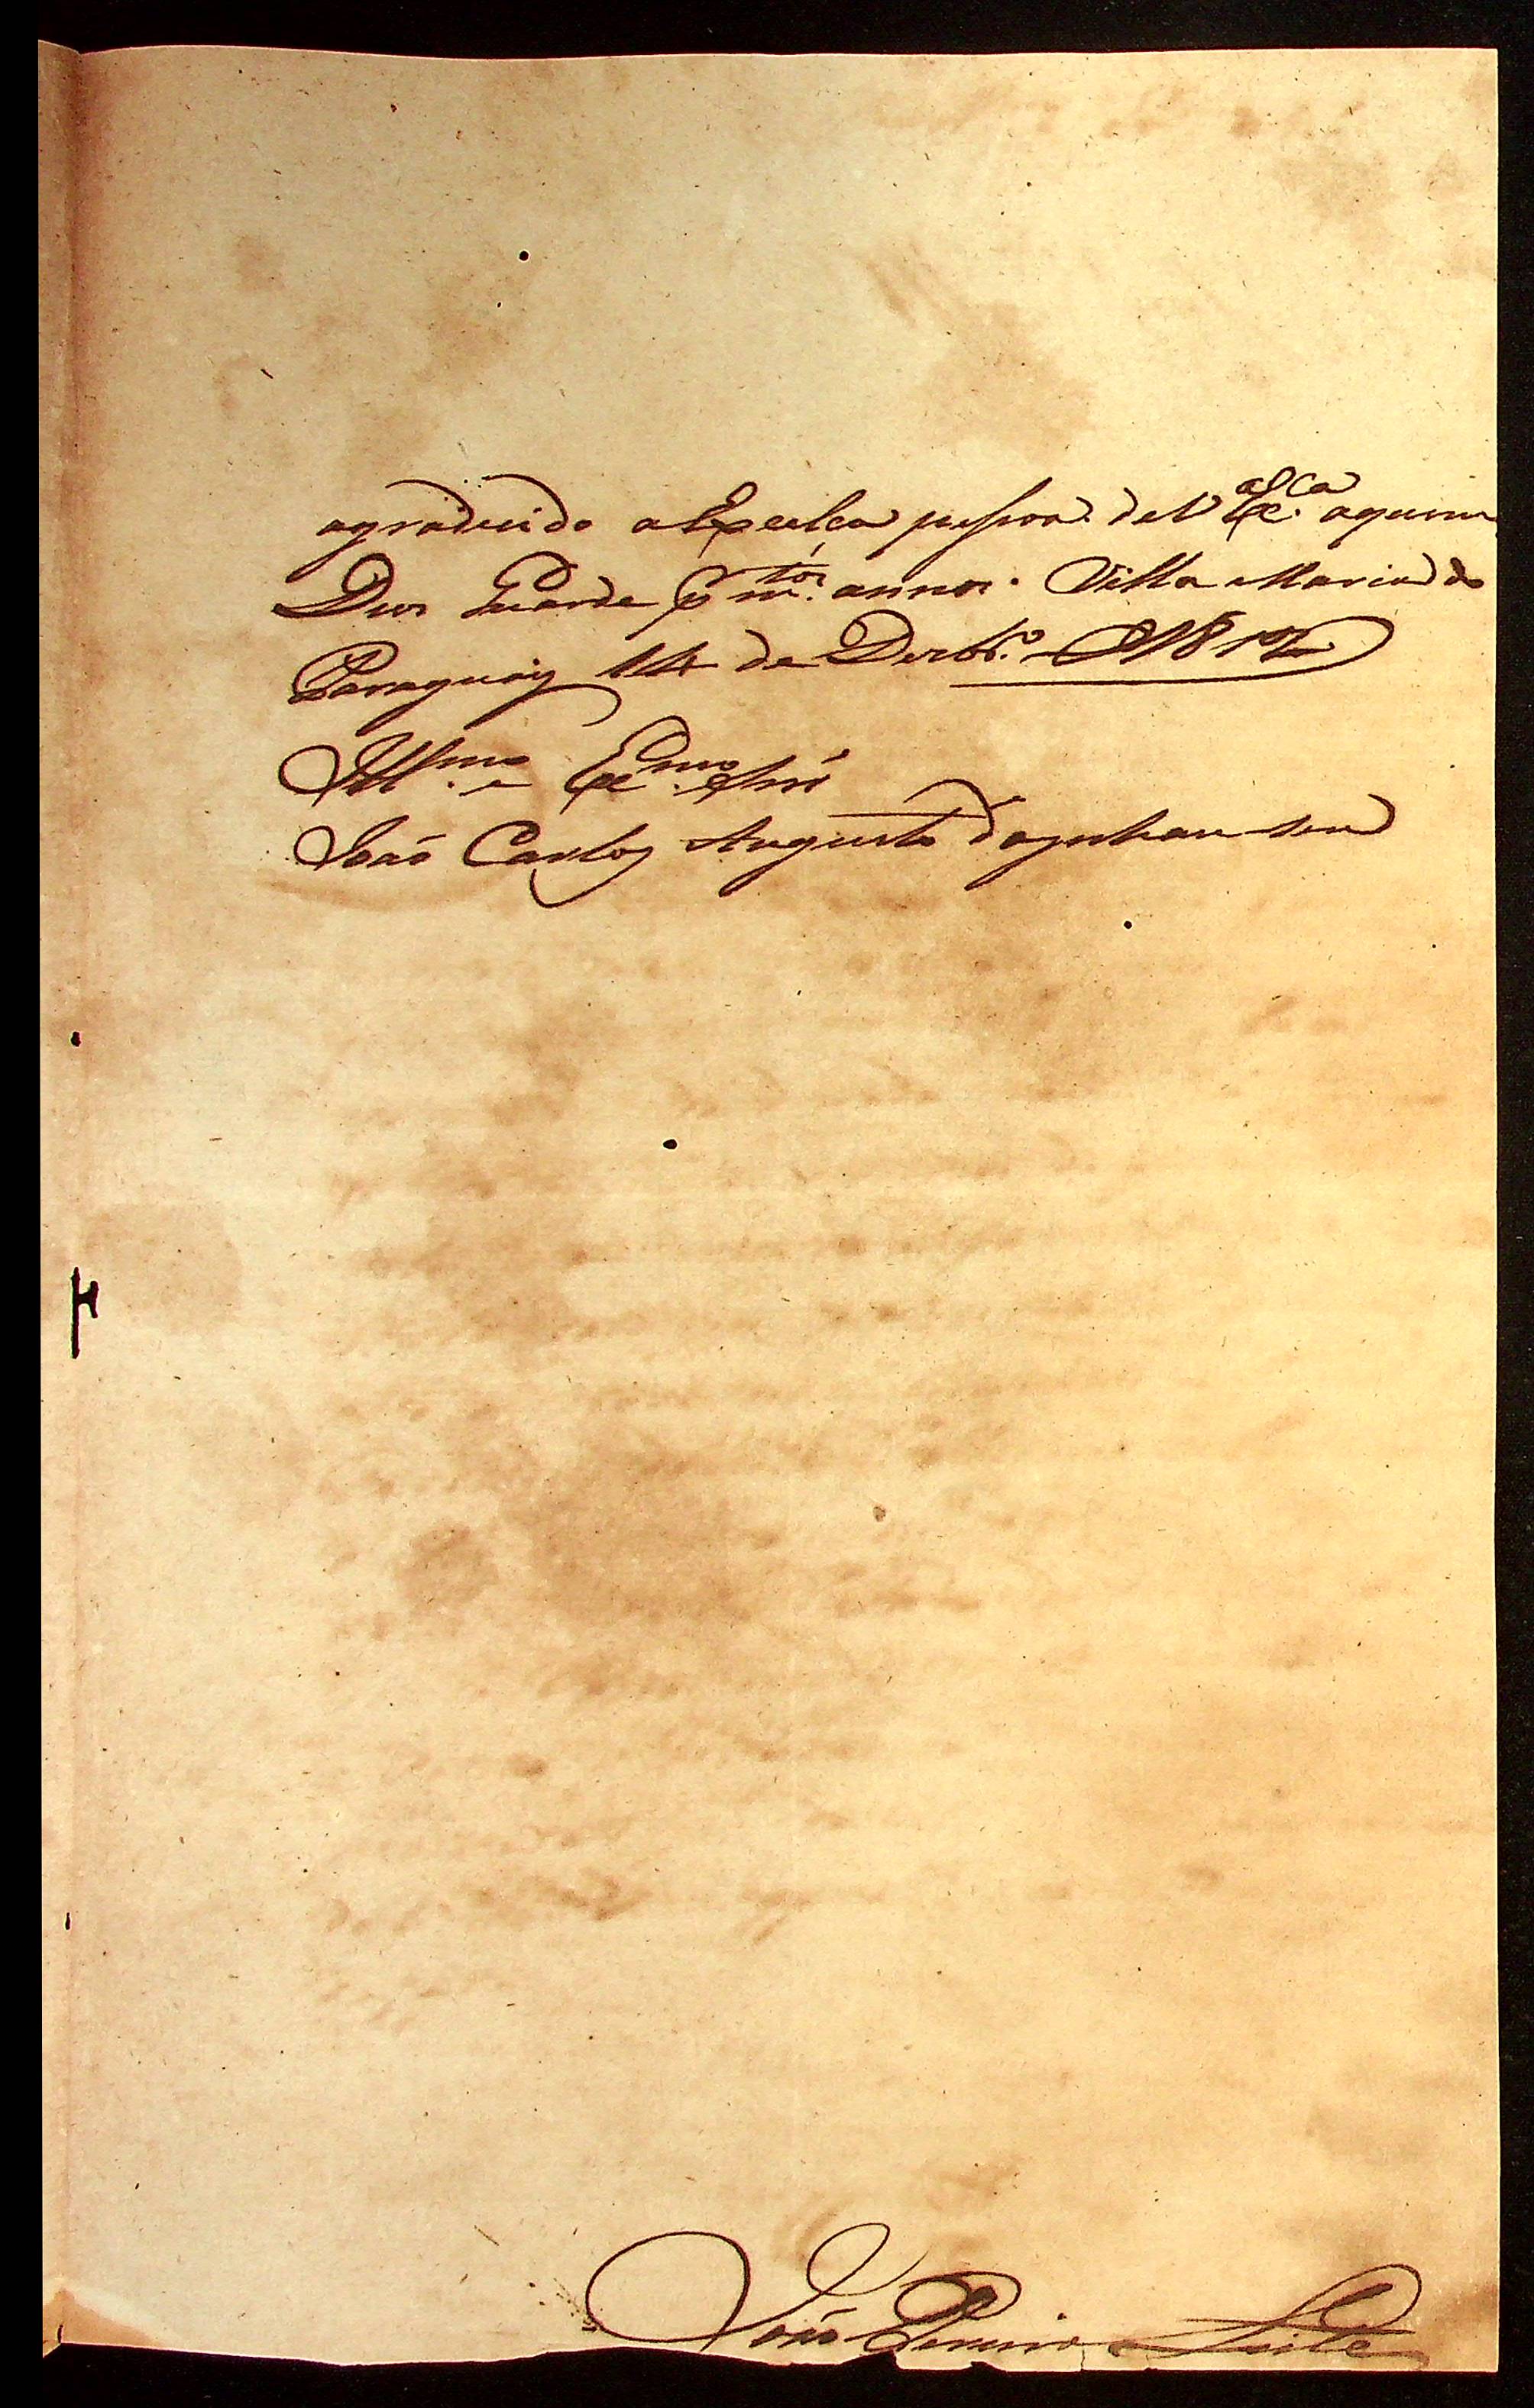 agradecido a Excelca pessoa de V Ex.ca aquem
Deos Guarde p.r m.tos annos. Villa Maria do
Paraguay 14 de Dezbr.o 181
Ill.mo e Ex.mo Snr
João Carlos Augusto d'
João Pereira Leite